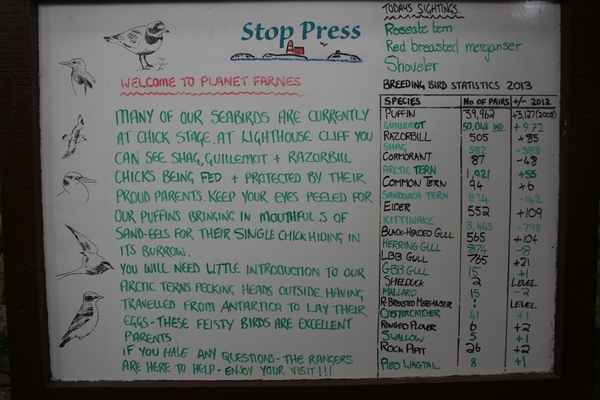 Stop Press
WELCOME TO PLANET FARNES
MANY OF OUR SEABIRDS ARE CURRENTLY
AT CHICK STAGE. AT LIGHTHOUSE CLIFF YOU
CAN SEE SHAG, GUILLEMOT + RAZORBILL
CHICKS BEING FED + PROTECTED BY THEIR
PROUD PARENTS. KEEP YOUR EYES PEELED FOR
OUR PUFFINS BRINGING IN MOUTHFUL S OF
SAND-EELS FOR THEIR SINGLE CHICK HIDING IN
ITS BURROW.
YOU WILL NEED LITTLE INTRODUCTION TO OUR
ARCTIC TERNS PECKING HEADS OUTSIDE. HAVING
TRAVELLED FROM ANTARTICA TO LAY THEIR
EGGS - THESE FEISTY BIRDS ARE EXCELLENT
PARENTS
IF YOU HAVE ANY QUESTIONS - THE RANGERS
ARE HERE TO HELP - ENJOY YOUR VISIT!!!
TODAYS SIGHTINGS.
Roseate tern
Red breasted merganser
Shoveler
BREEDING BIRD STATISTICS 2013
SPECIES No OF PAIRS +/- 2012
PUFFIN 39,962 +3,127 (2008)
GUILLEMOT IND. +972
RAZORBILL 505 +85
SHAG 582 -383
CORMORANT 87 -48
ARCTIC TERN 1,921 +55
COMMON TERN 94 +6
SANDWICH TERN -142
EIDER 552 +109
KITTIWAKE 3,443 -798
BLACK-HEADED GULL 565 +104
HERRING GULL -8
LBB GULL 765 +21
GBB GULL 15 +1
SHELDUCK 2 LEVEL
MALLARD 15 -2
R-BREASTED MERGANSER LEVEL
OYSTERCATCHER 41 +1
RINGED PLOVER 6 +2
SWALLOW 5 +1
ROCK PIPIT 26 +2
PIED WAGTAIL 8 +1